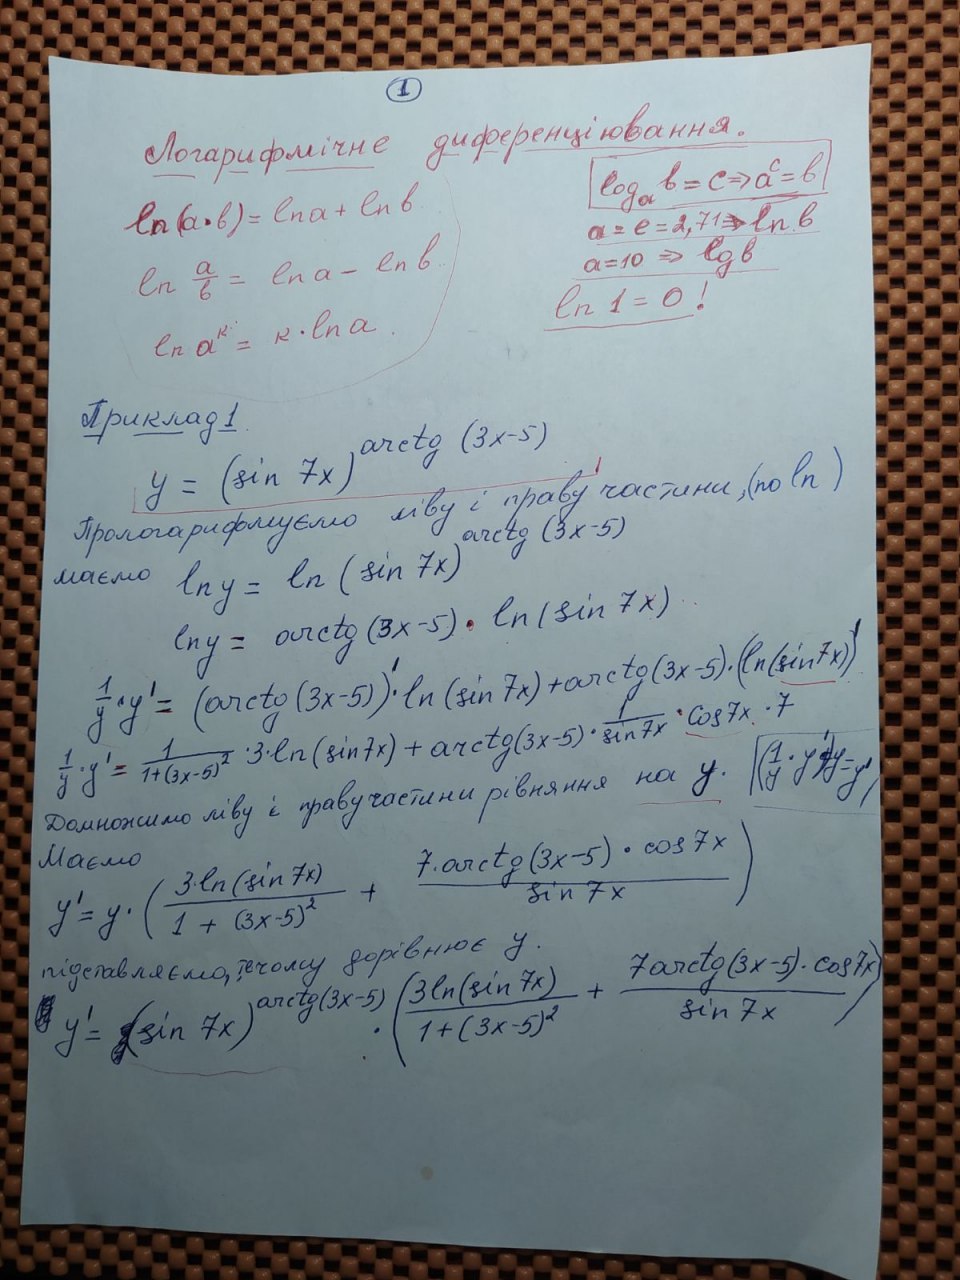 1
Логарифмічне диференціювання.
ln(a·b) = ln a + ln b
ln a/b = ln a − ln b
ln a^к = к·ln a.
log_a b = c ⇒ a^c = b
a = e = 2,71 ⇒ ln b
a=10 ⇒ lg b
ln 1 = 0!
Приклад 1.
y = (sin 7x)^arctg (3x-5)
Прологарифмуємо ліву і праву частини, (по ln)
маємо ln y = ln (sin 7x)^arctg (3x-5)
ln y = arctg (3x-5) · ln (sin 7x)
1/y · y' = (arctg (3x-5))' · ln (sin 7x) + arctg (3x-5) · (ln(sin 7x))'
1/y · y' = 1/(1+(3x-5)²) · 3 · ln (sin7x) + arctg(3x-5) · 1/sin7x · cos7x · 7
Домножимо ліву і праву частини рівняння на y. (1/y · y')·y = y'
Маємо
y' = y · (3·ln(sin7x)/(1 + (3x-5)²) + 7·arctg(3x-5) · cos7x/sin 7x)
підставляємо, чому дорівнює y.
y' = (sin 7x)^arctg(3x-5) · (3ln(sin7x)/(1+(3x-5)²) + 7arctg(3x-5)·cos7x/sin 7x)